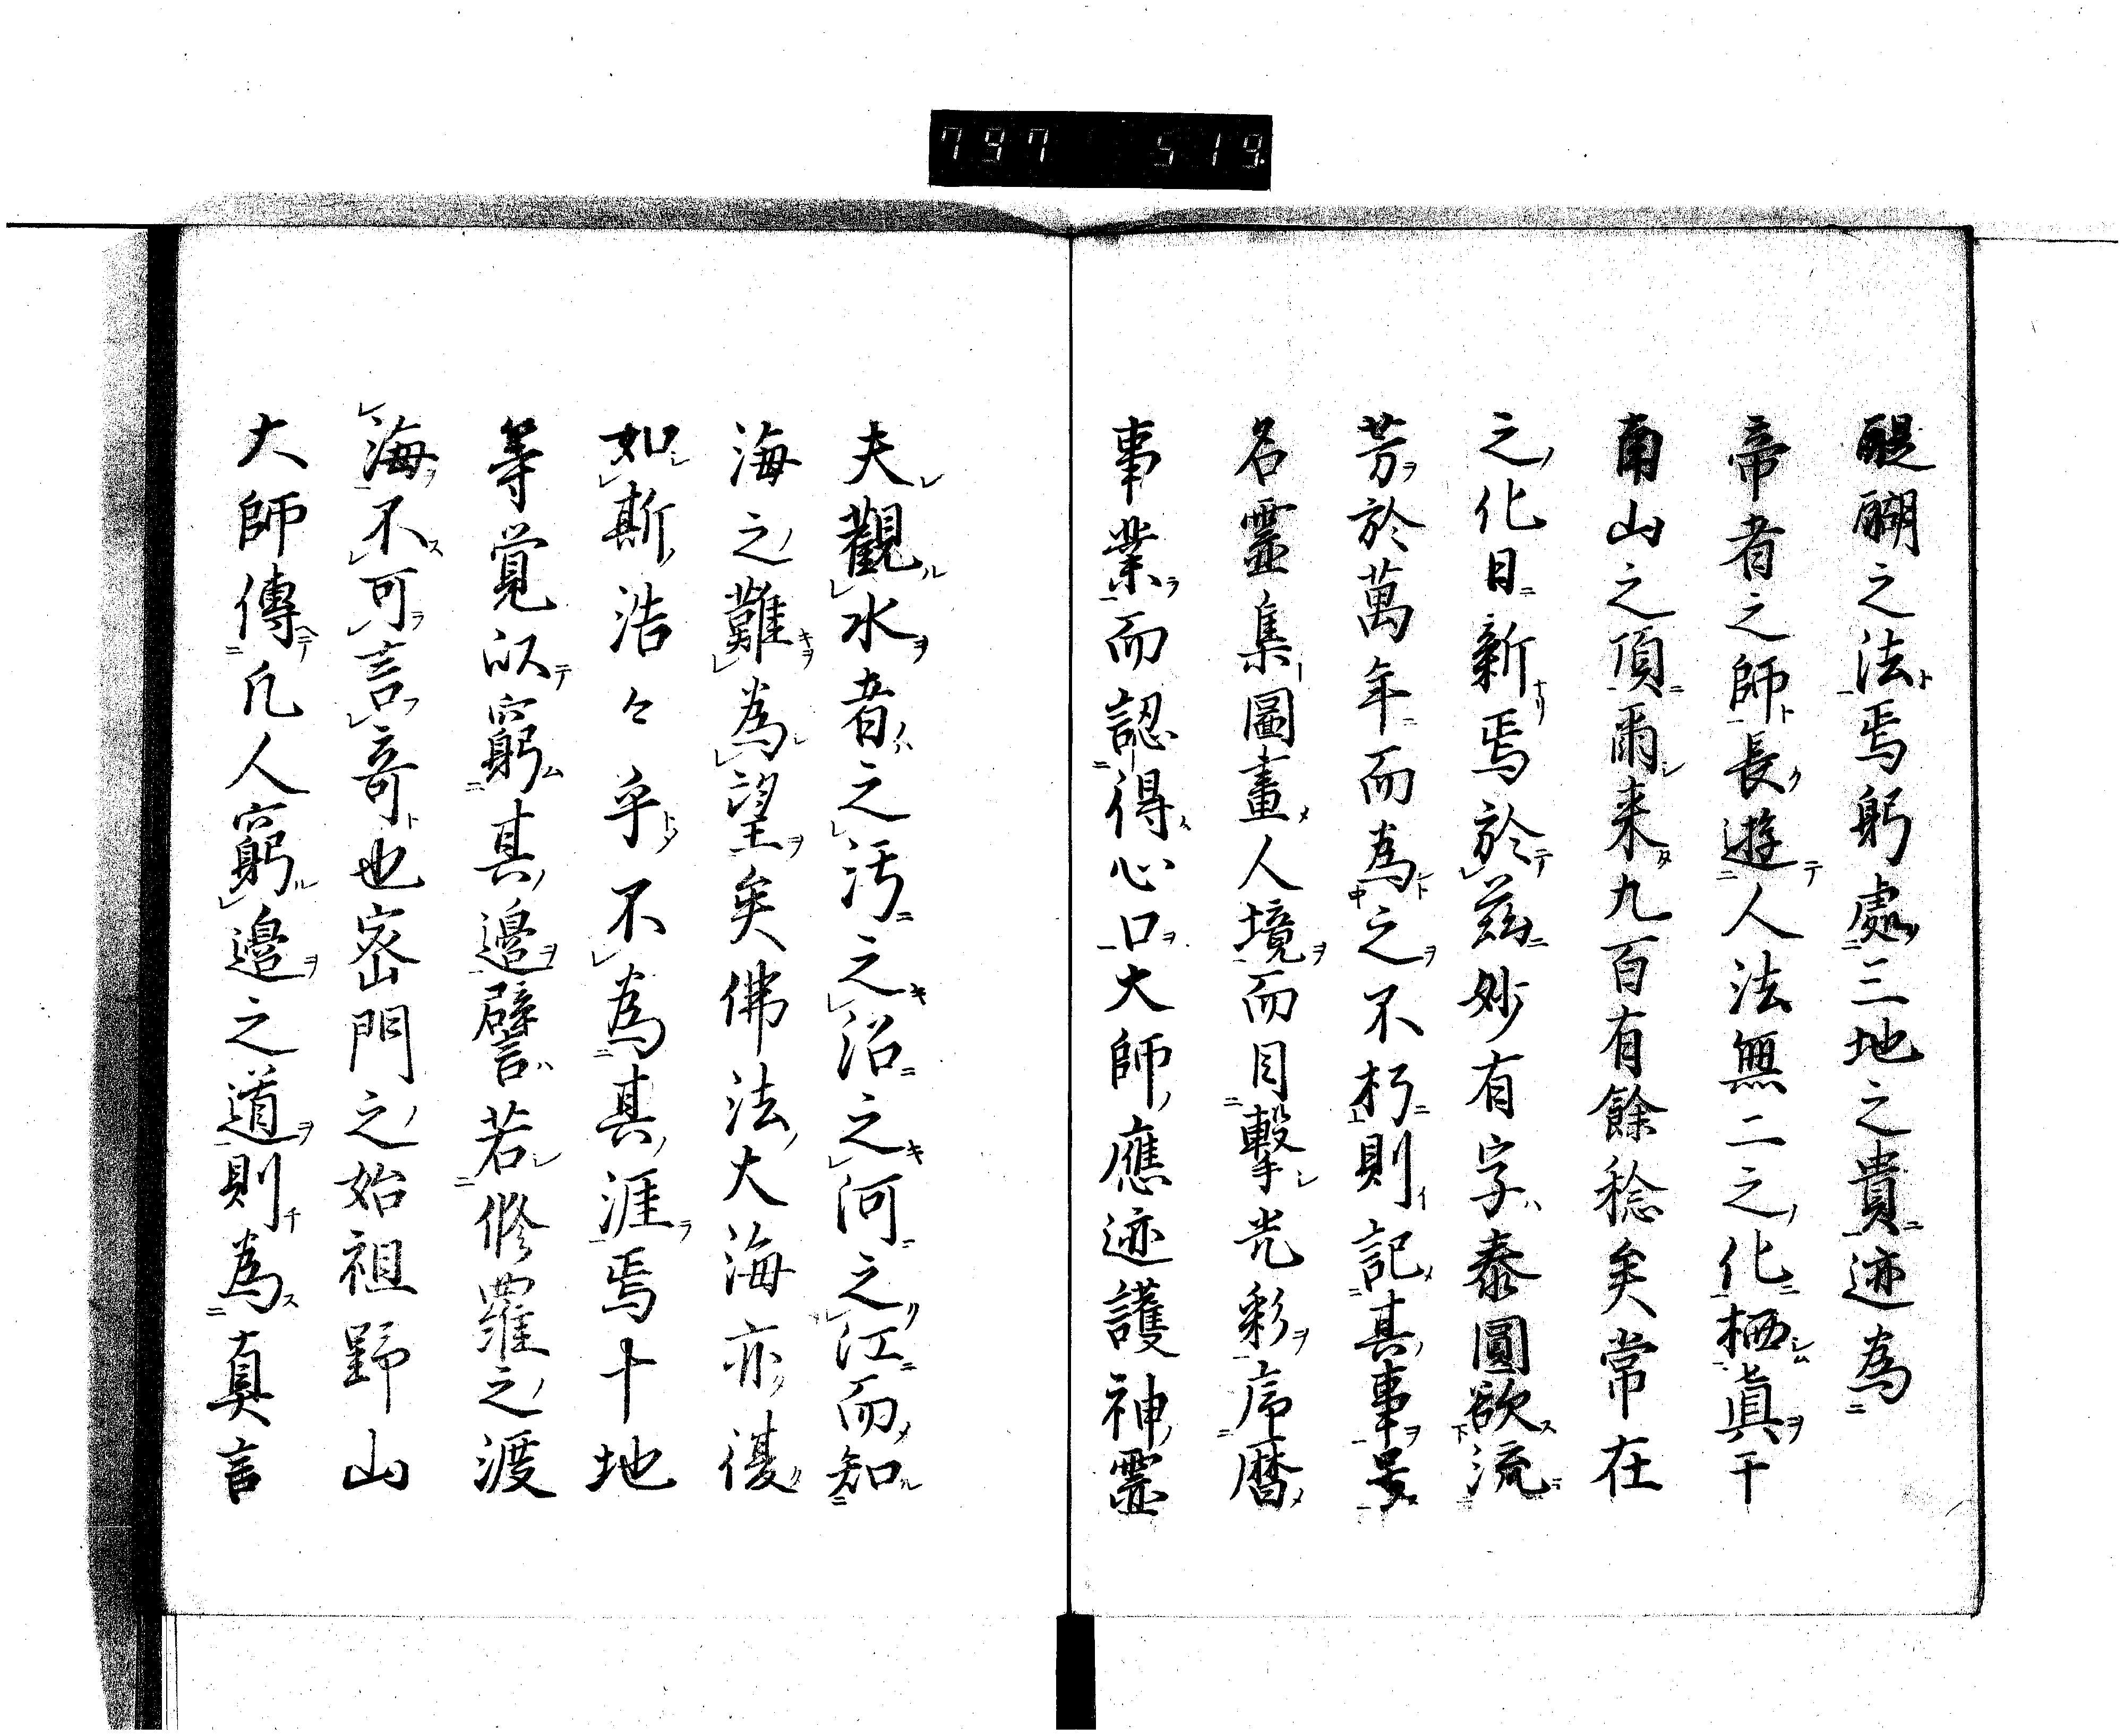 797 519
醍醐之法焉躬處三地之貴迹為
帝者之師長遊人法無二之化栖眞于
南山之頂爾来九百有餘稔矣常在
之化日新焉於茲妙有字泰圓欲流
芳於萬年而為之不朽則記其事号
名靈集圖畫人境而目擊光彩序曆
事業而認得心口大師應迹護神靈
夫觀水者之汚之沿之河之江而知
海之難為望矣佛法大海亦復
如斯浩々乎不為其涯焉十地
等覚以窮其邊譬若修羅之渡
海不可言奇也密門之始祖野山
大師傳凡人窮邊之道則為真言